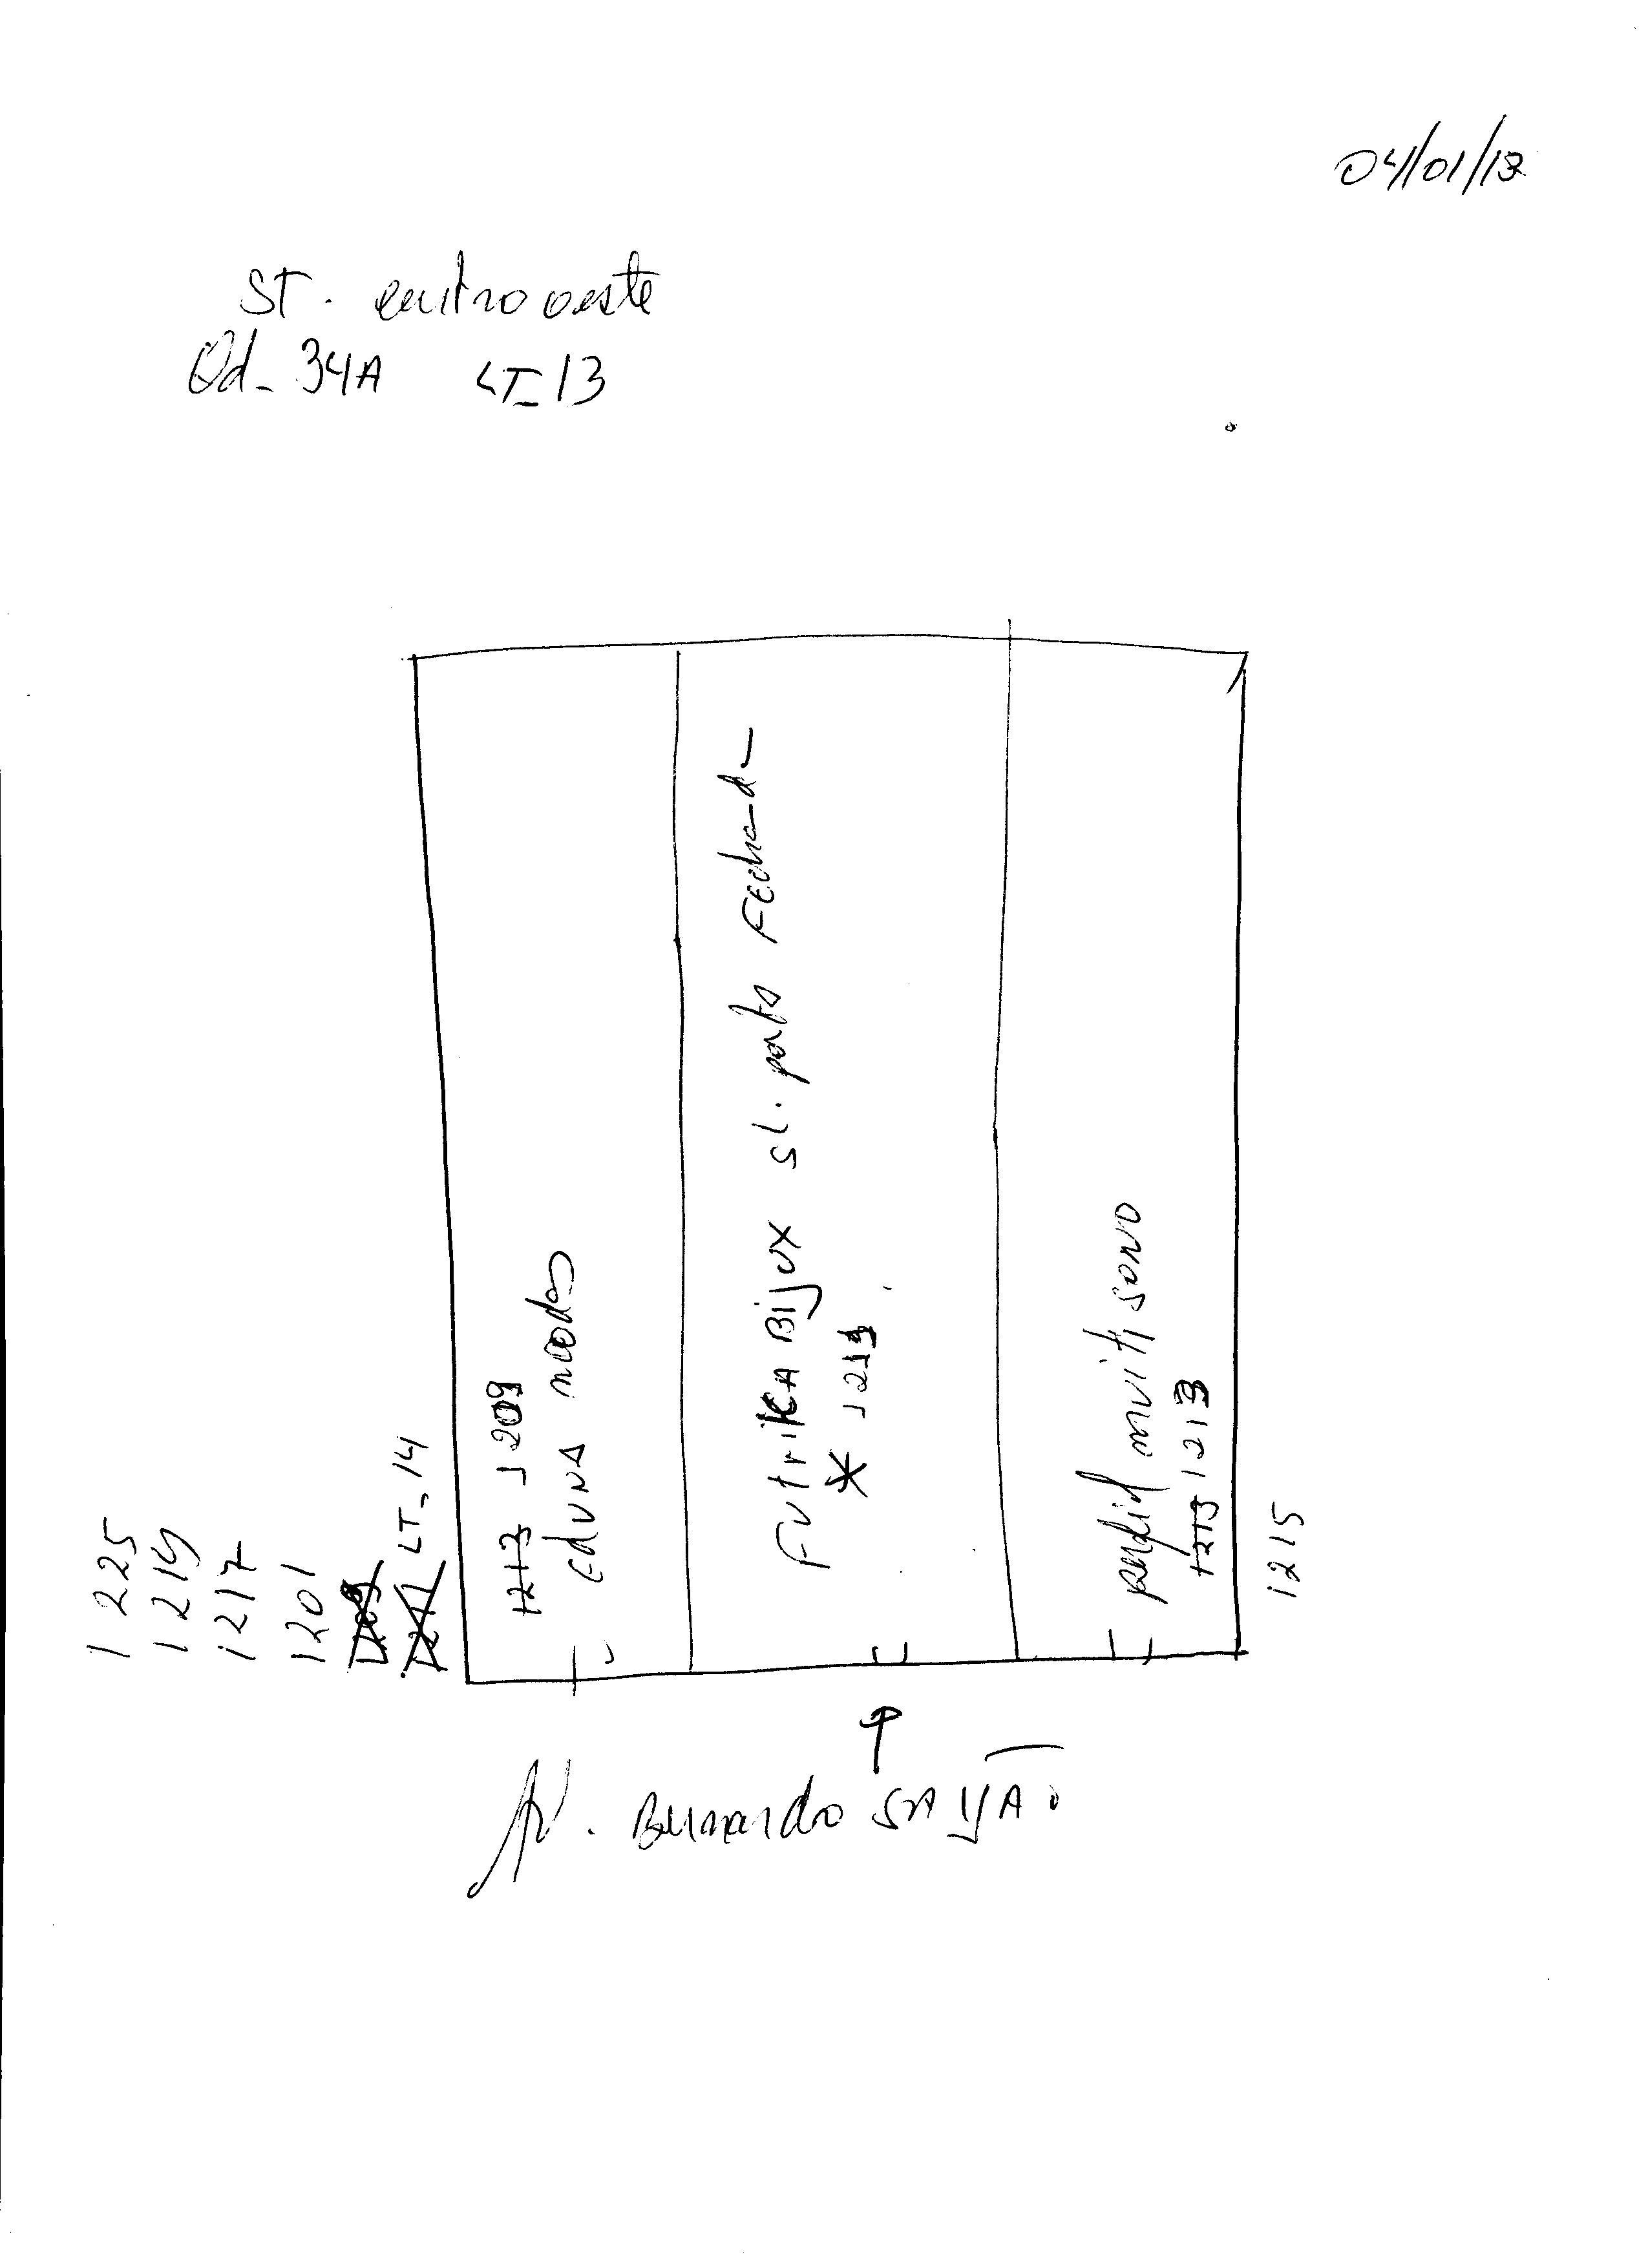 04/01/13
ST. centro oeste
Qd- 34A LT-13
1225
1219
1217
1201
1209
1211 LT-14
1213 1209
Eduna modas
Futrika Bijux sl. porta Fechada
* 1211
multi sono
1213 1213
1215
AV. Bernardo SAYÃO